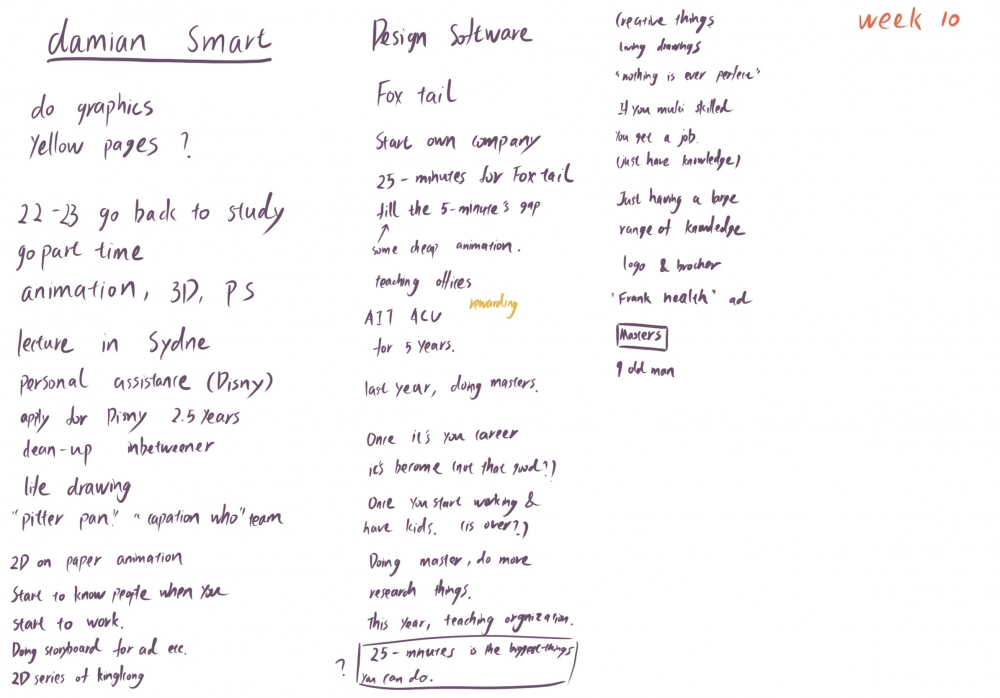 damian Smart
do graphics
Yellow pages ?
22-23 go back to study
go part time
animation, 3D, PS
lecture in Sydne
personal assistance (Disny)
apply for Disny 2.5 Years
clean-up inbetweener
life drawing
"pitter pan" "capation who" team
2D on paper animation
Start to know people when you
start to work.
Doing storyboard for ad etc.
2D series of kingkong
Design Software
Fox tail
Start own company
25-minutes for Fox tail
fill the 5-minute's gap
some cheap animation.
teaching offices
rewarding
AIT ACU
for 5 years.
last year, doing masters.
Once it's you career
it's become (not that good?)
Once you start working &
have kids. (is over?)
Doing master, do more
research things.
This year, teaching orgnization.
? 25-minutes is the biggest things
you can do.
Creative things
living drawings
"nothing is ever perfect"
If you multi skilled
You get a job.
(just have knowledge)
Just having a large
range of knowledge
logo & brocher
"Frank health" ad
Masters
9 old man
week 10